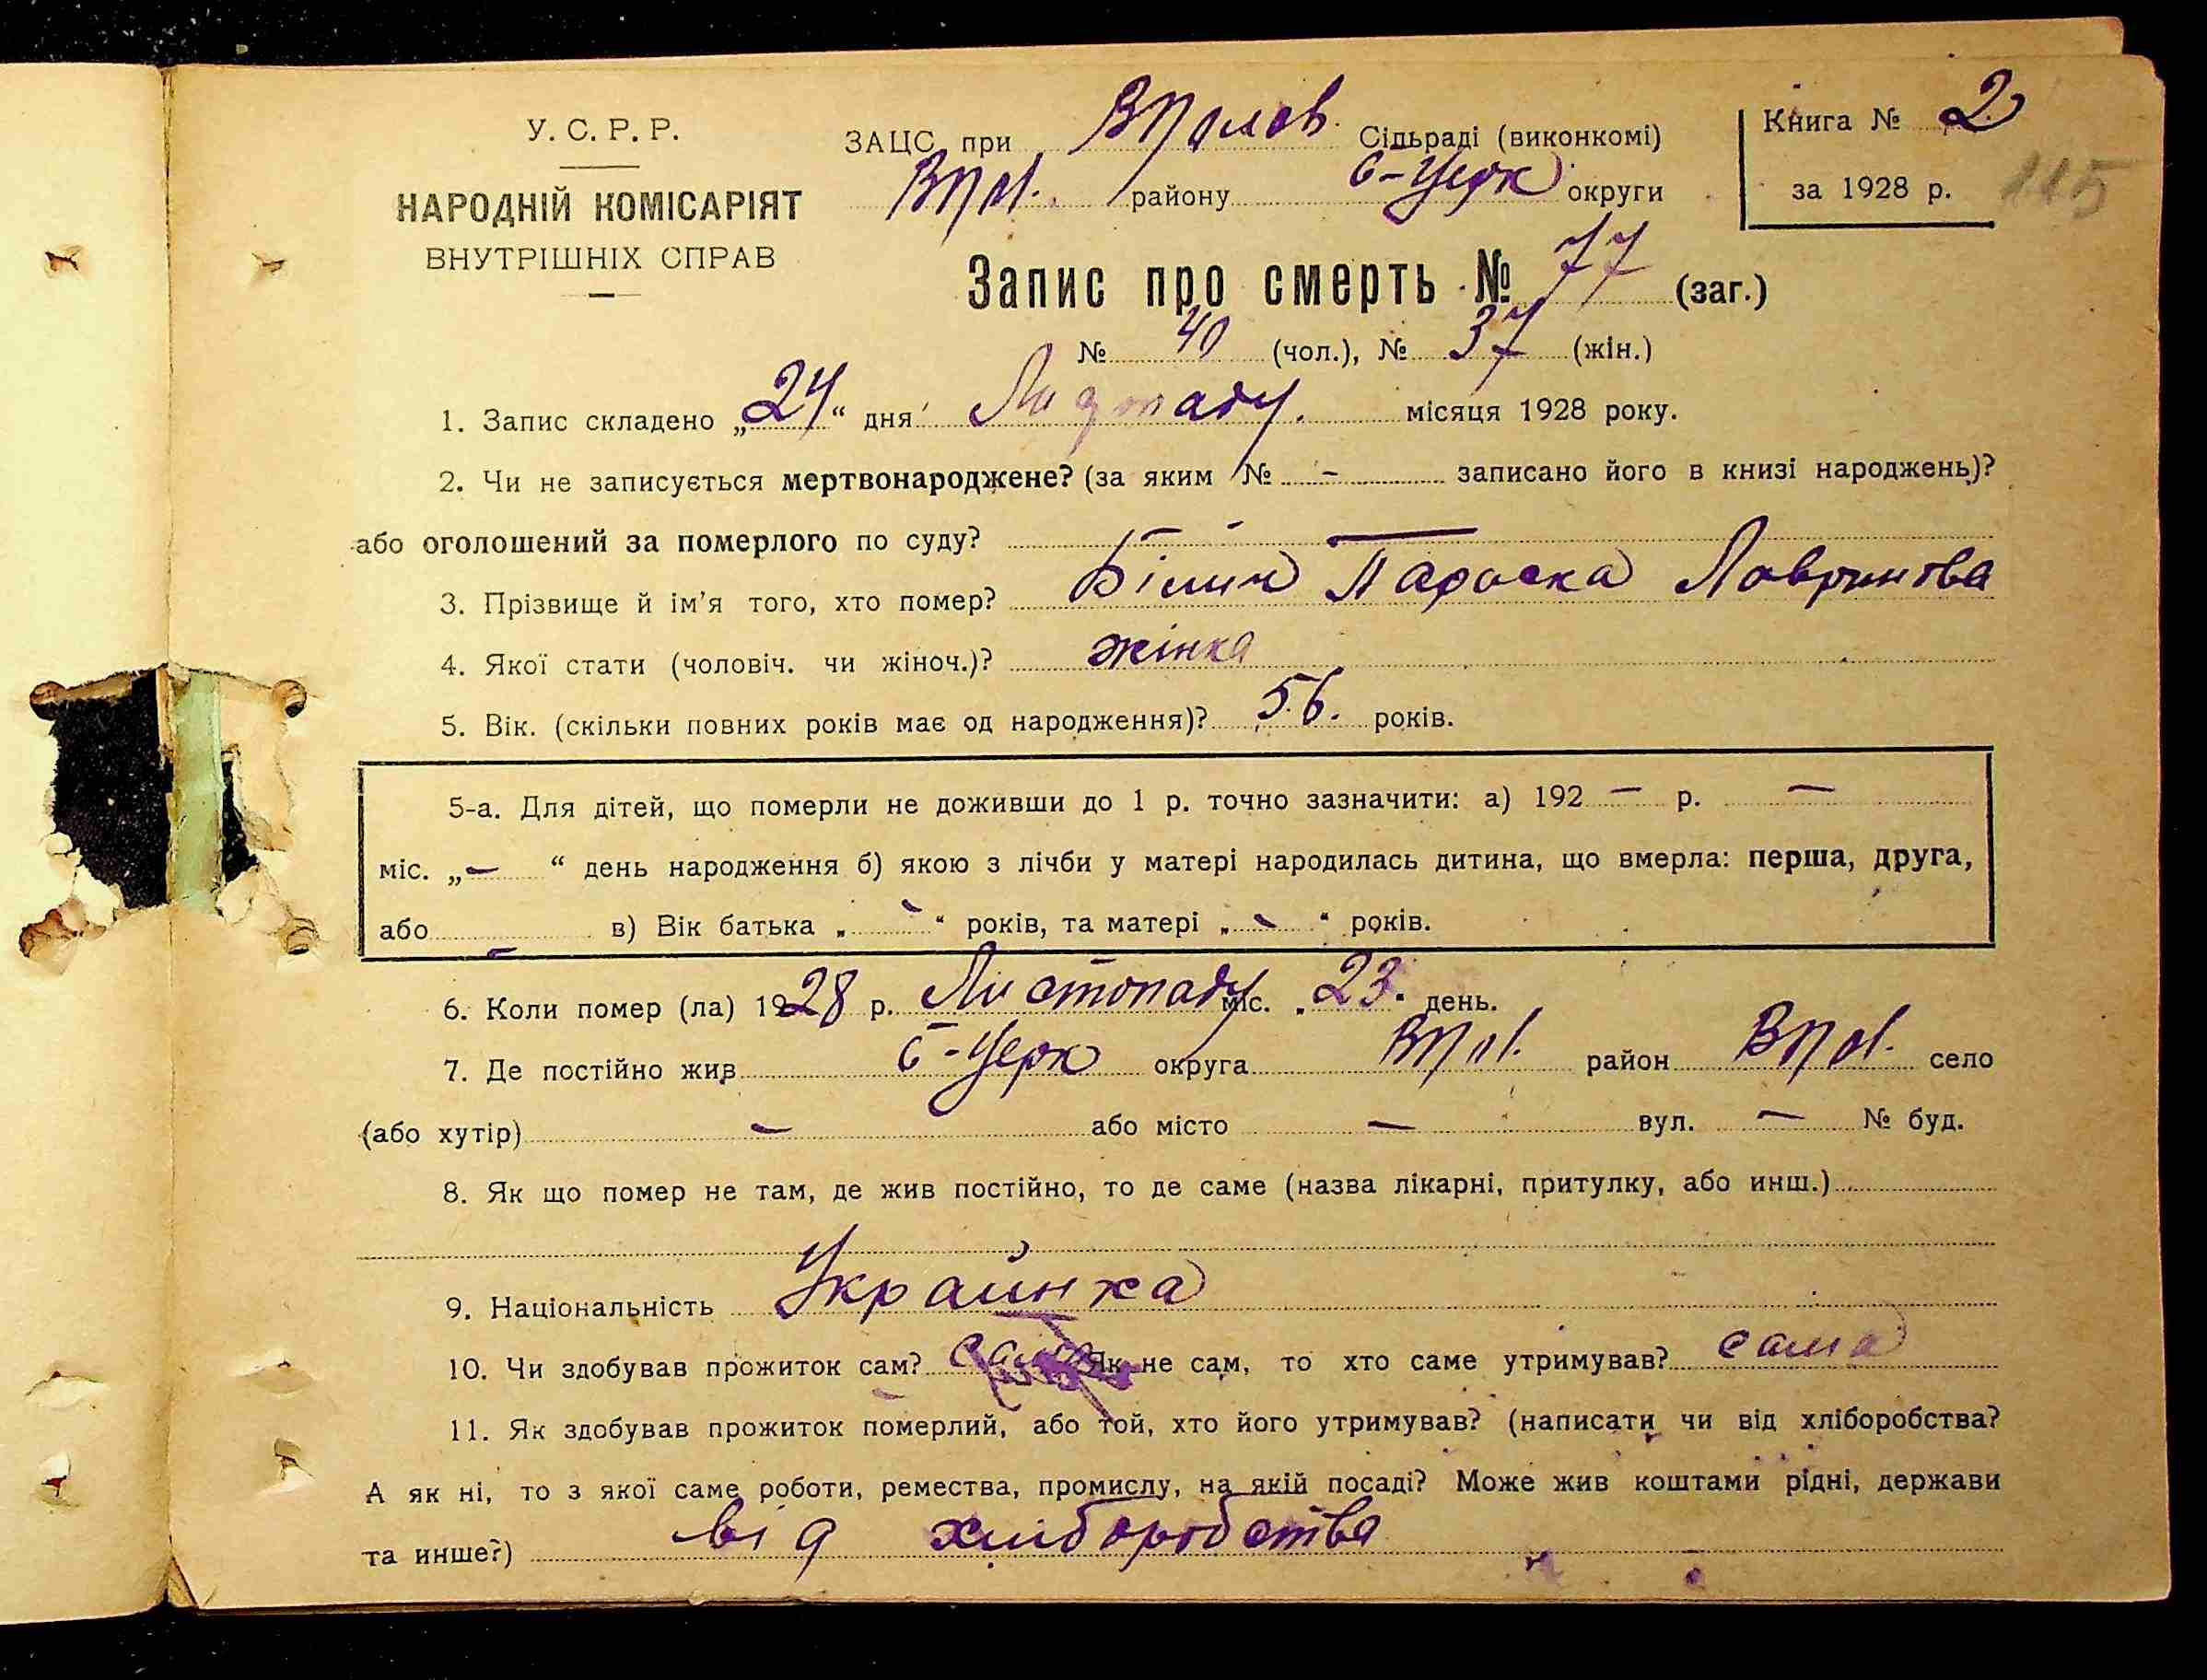 У. С. Р. Р.
НАРОДНІЙ КОМІСАРІЯТ
ВНУТРІШНІХ СПРАВ
ЗАЦС при ВПолов. Сільраді (виконкомі)
ВПол. району Б-Церк округи
Книга № 2
за 1928 р.
115
Запис про смерть № 77 (заг.)
№ 40 (чол.), № 37 (жін.)
1. Запис складено „24“ дня Листопаду. місяця 1928 року.
2. Чи не записується мертвонароджене? (за яким № – записано його в книзі народжень)?
або оголошений за померлого по суду? —
3. Прізвище й ім’я того, хто помер? Білич Параска Лавринова
4. Якої стати (чоловіч. чи жіноч.)? жінка
5. Вік. (скільки повних років має од народження)? 56. років.
5-а. Для дітей, що померли не доживши до 1 р. точно зазначити: а) 192 — р. —
міс. „—“ день народження б) якою з лічби у матері народилась дитина, що вмерла: перша, друга,
або — в) Вік батька „-“ років, та матері „-“ років.
6. Коли помер (ла) 1928 р. Листопаду міс. „23“ день.
7. Де постійно жив Б-Церк округа ВПол. район ВПол. село
(або хутір) — або місто — вул. — № буд.
8. Як що помер не там, де жив постійно, то де саме (назва лікарні, притулку, або инш.)
9. Національність Українка
10. Чи здобував прожиток сам? Як не сам, то хто саме утримував? сама
11. Як здобував прожиток померлий, або той, хто його утримував? (написати чи від хліборобства?
А як ні, то з якої саме роботи, ремества, промислу, на якій посаді? Може жив коштами рідні, держави
та инше?) від хліборобства